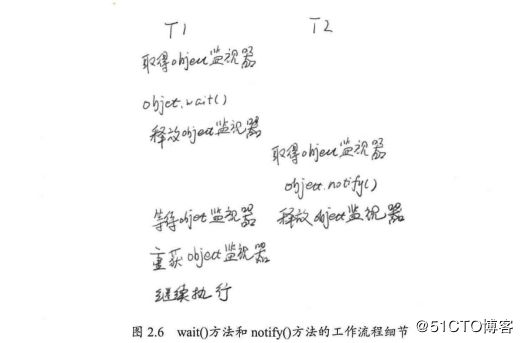 T1 T2
取得object监视器
objet.wait()
释放object监视器
取得object监视器
object.notify()
等待objet监视器 释放object监视器
重获object监视器
继续执行
图 2.6 wait()方法和notify()方法的工作流程细节
@51CTO博客